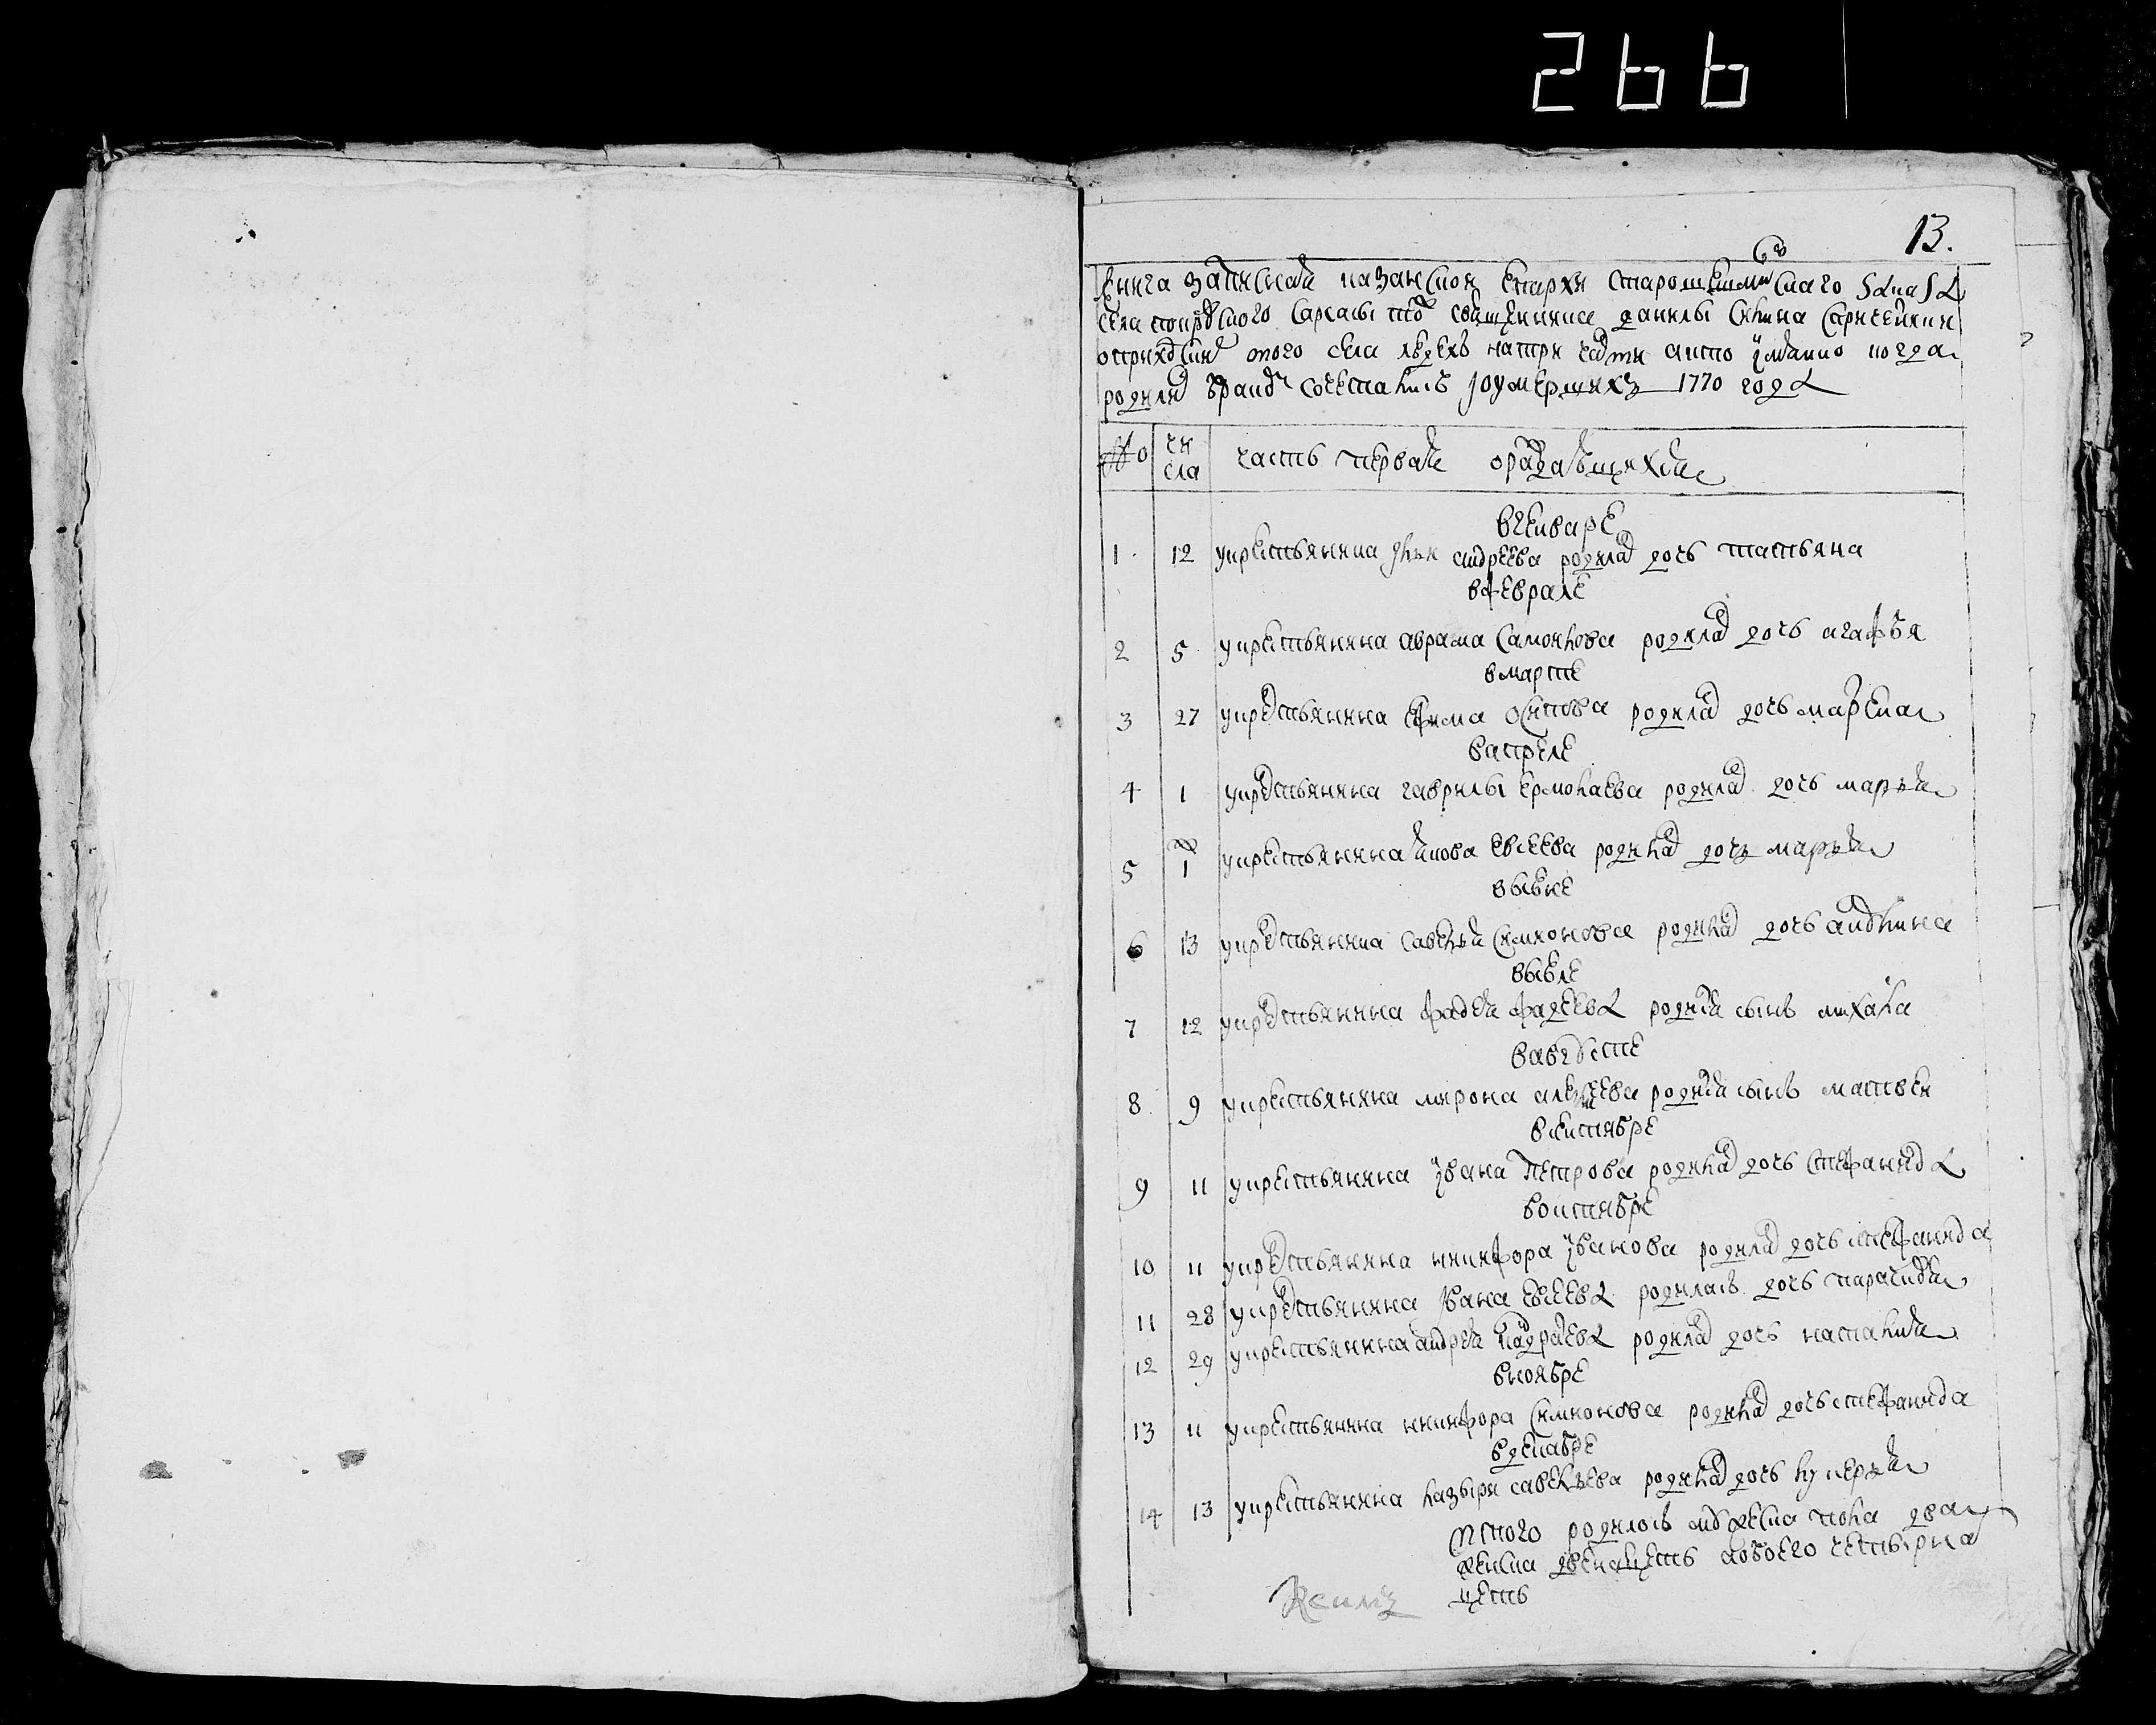 266
13.
63
Книга записная казанской епархи старошешминскаго заказа
села покровского сарсасы тож священника данилы силина
о приходских того села людех на три части а имянно когда
родился браком сочетались и умерших 1770 года
№ 0 чи сла часть первая о раждающихся
в генваре
1 12 у крестьянина андреева родилас дочь татьяна
в феврале
2 5 у крестьянина аврама самойлова родилас дочь агафья
в марте
3 27 у крестьянина ефима осипова родилас дочь
в апреле
4 1 у крестьянина гаврилы ермолаева родилас дочь марья
5 1 у крестьянина якова евсеева родилас дочъ марья
в июне
6 13 у крестьянина савелья симионова родилас дочь акилина
в июле
7 12 у крестьянина фадея фадеева родился сынъ михаила
в августе
8 9 у крестьянина мирона алексеева родился сынъ матвей
в сентябре
9 11 у крестьянина ивана петрова родилас дочь стефанида
в октябре
10 11 у крестьянина никифора иванова родилас дочь стефанида
11 28 у крестьянина ивана евсеева родилась дочь параскидья
12 29 у крестьянина андрея родилас дочь наталия
в ноябре
13 11 у крестьянина никифора симионова родилас дочь стефанида
в декабре
14 13 у крестьянина лазыри савельева родилас дочь лукерья
итого родилось мужеска пола два
женска двенатцеть а обоего четырна
цеть